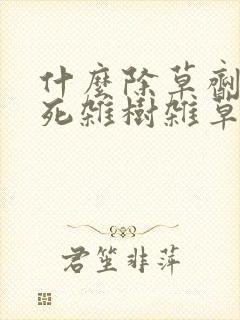 什麼除草劑
死雜樹雜草
君笙非萍